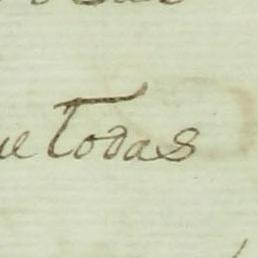 ue Todas